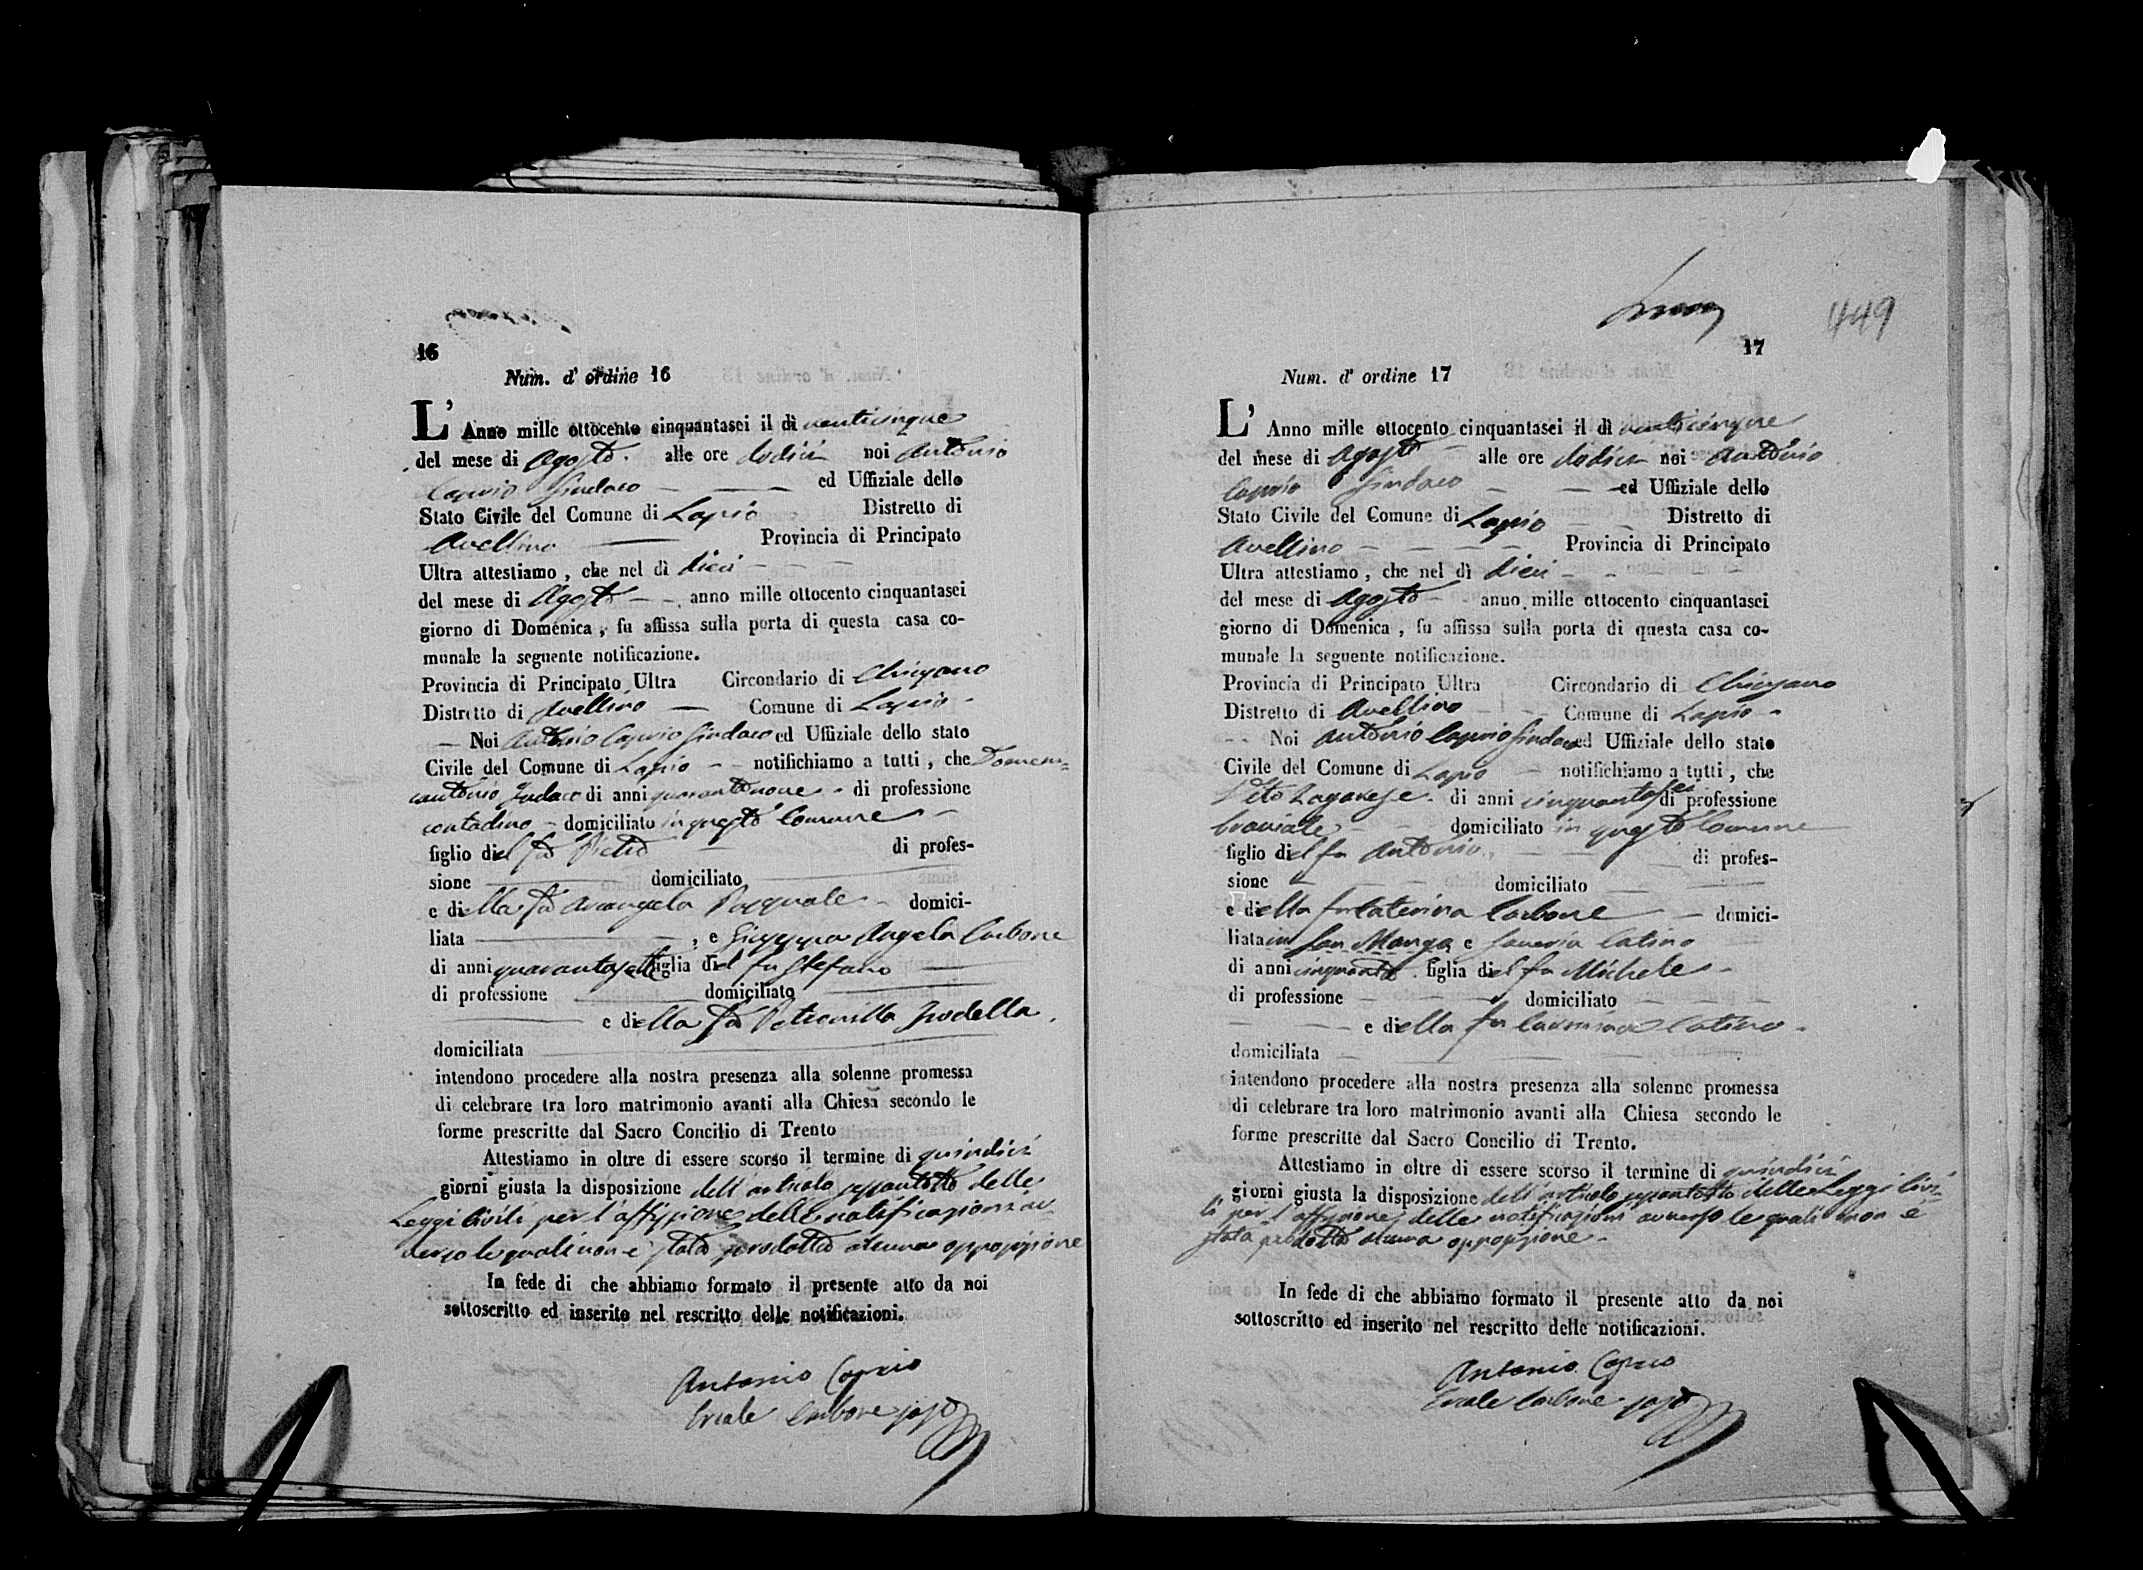 16
Num. d' ordine 16
L' Anno mille ottocento cinquantasei il dì venticinque
del mese di Agosto alle ore dodici noi Antonio
Caprio Sindaco ed Uffiziale dello
Stato Civile del Comune di Lapio Distretto di
Avellino Provincia di Principato
Ultra attestiamo , che nel dì dieci
del mese di Agosto anno mille ottocento cinquantasei
giorno di Domenica , fu affissa sulla porta di questa casa co-
munale la seguente notificazione.
Provincia di Principato Ultra Circondario di Chiusano
Distretto di Avellino Comune di Lapio
Noi Antonio Caprio Sindaco ed Uffiziale dello stato
Civile del Comune di Lapio notifichiamo a tutti , che Domeni=
cantonio di anni quarantanove di professione
contadino domiciliato in questo Comune
figlio del fu Pietro di profes-
sione domiciliato
e della fu Arcangela Pasquale domici-
liata , e Giuseppa Angela Carbone
di anni quarantasette figlia del fu Stefano
di professione domiciliato
e della fu Petronilla Irodella
domiciliata
intendono procedere alla nostra presenza alla solenne promessa
di celebrare tra loro matrimonio avanti alla Chiesa secondo le
forme prescritte dal Sacro Concilio di Trento
Attestiamo in oltre di essere scorso il termine di quindici
giorni giusta la disposizione dell'articolo settantotto delle
Leggi Civili per l'affissione delle notificazioni av=
verso le quali non è stata prodotta alcuna opposizione
In fede di che abbiamo formato il presente atto da noi
sottoscritto ed inserito nel rescritto delle notificazioni.
Antonio Caprio
Ercole Carbone
449
17
Num. d' ordine 17
L' Anno mille ottocento cinquantasei il dì venticinque
del mese di Agosto alle ore dodici noi Antonio
Caprio Sindaco ed Uffiziale dello
Stato Civile del Comune di Lapio Distretto di
Avellino Provincia di Principato
Ultra attestiamo , che nel dì dieci
del mese di Agosto anno mille ottocento cinquantasei
giorno di Domenica , fu affissa sulla porta di questa casa co-
munale la seguente notificazione.
Provincia di Principato Ultra Circondario di Chiusano
Distretto di Avellino Comune di Lapio
Noi Antonio Caprio Sindaco ed Uffiziale dello stato
Civile del Comune di Lapio notifichiamo a tutti , che
Vito Lagarese di anni cinquantasei di professione
bracciale domiciliato in questo Comune
figlio del fu Antonio di profes-
sione domiciliato
e della fu Caterina Carbone domici-
liata in San Mango e Saveria Catino
di anni cinquanta figlia del fu Michele
di professione domiciliato
e della fu Catino
domiciliata
intendono procedere alla nostra presenza alla solenne promessa
di celebrare tra loro matrimonio avanti alla Chiesa secondo le
forme prescritte dal Sacro Concilio di Trento.
Attestiamo in oltre di essere scorso il termine di quindici
giorni giusta la disposizione dell'articolo settantotto delle Leggi Civi=
li per l'affissione delle notificazioni avverso le quali non è
stata prodotta alcuna opposizione
In fede di che abbiamo formato il presente atto da noi
sottoscritto ed inserito nel rescritto delle notificazioni.
Antonio Caprio
Ercole Carbone